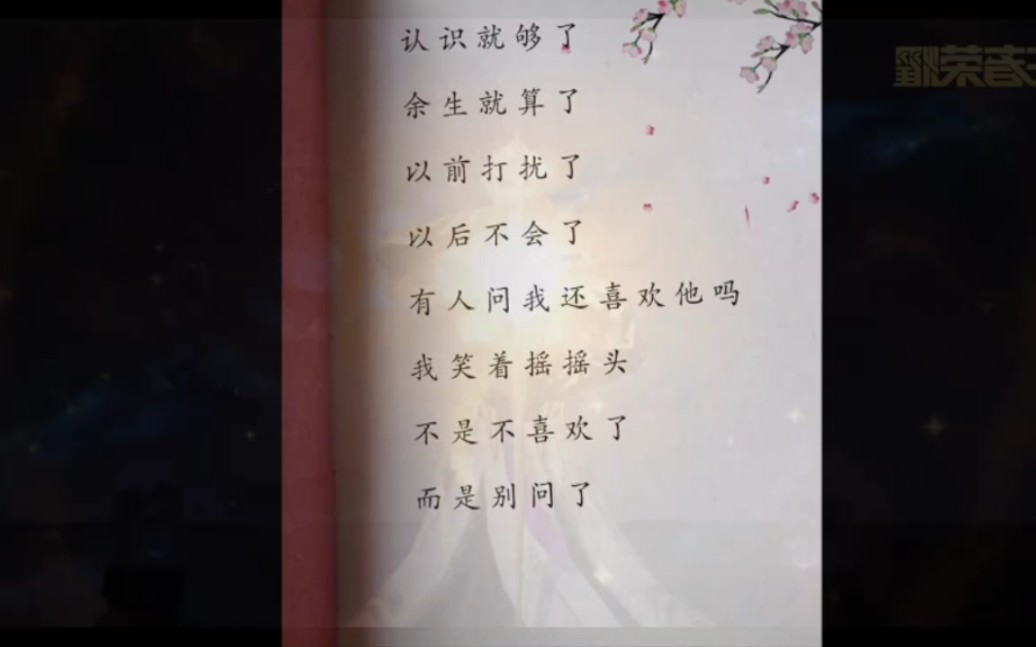 认识就够了
余生就算了
以前打扰了
以后不会了
有人问我还喜欢他吗
我笑着摇摇头
不是不喜欢了
而是别问了